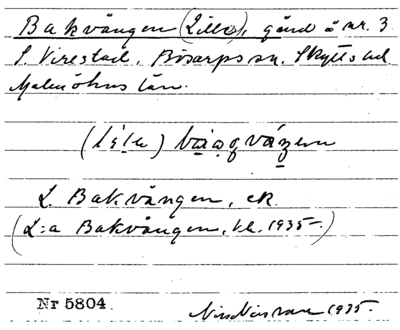 Bakvången (Lilla), gård å nr. 3
S. Virestad, Bösarps sn. Skytts hd
Malmöhus län.
(lila)
L. Bakvången, ek.
(L:a Bakvången, kl. 1935-.)
Nr 5804.
1935.